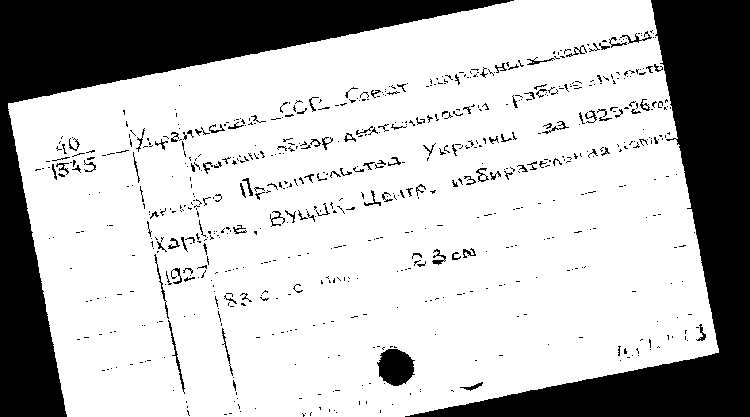 40
1345
Украинская ССР. Совет народных комиссаров
Краткий обзор деятельности рабоче-кресть
янского Правительства Украины за 1925-26 год
Харьков, ВУЦИК. Центр. избирательная комис.
1927
83 с. с 23 см